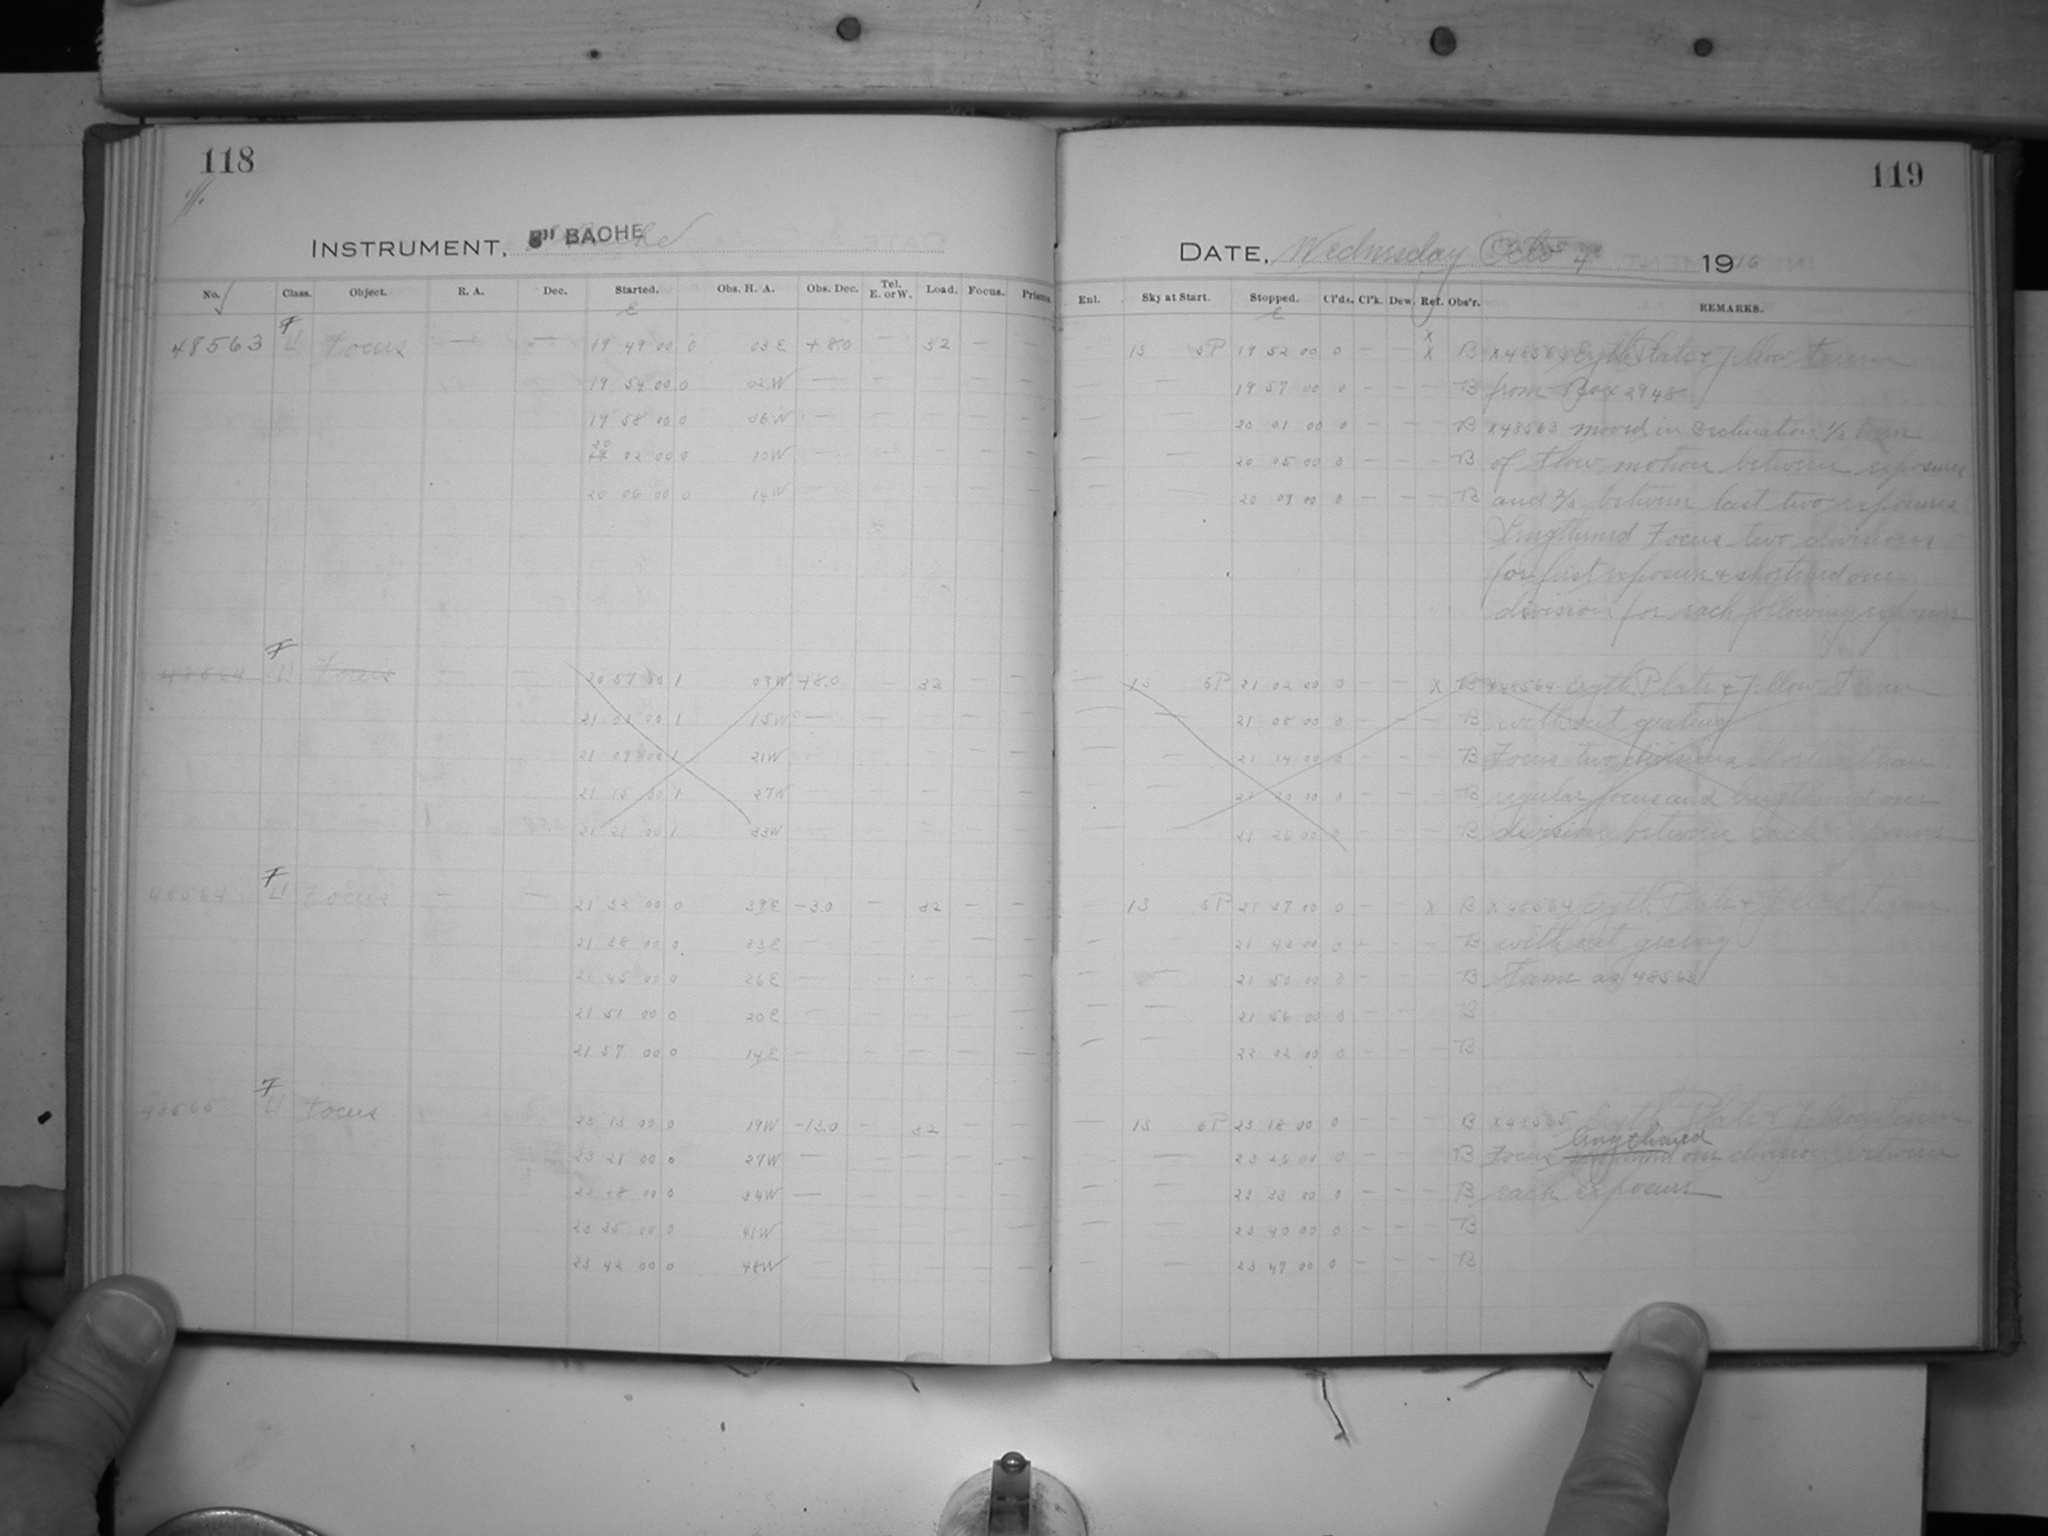 118
INSTRUMENT, 8" BACHE
No. Class. Object. R. A. Dec. Started. Obs. H. A. Obs. Dec. Tel. E. or W. Load. Focus. Prisms.
48563 F Focus — — 19 49 00 0 03 E +8.0 — 32 — —
19 54 00 0 02 W — — — — —
19 58 00 0 06 W — — — — —
20 02 00 0 10 W — — — — —
20 06 00 0 14 W — — — — —
48564 F Focus — — 20 57 00 1 09 W +8.0 — 32 — —
21 03 00 1 15 W — — — — —
21 09 00 1 21 W — — — — —
21 15 00 1 27 W — — — — —
21 21 00 1 33 W — — — — —
48564 F Focus — — 21 32 00 0 39 E -3.0 — 32 — —
21 38 00 0 33 E — — — — —
21 45 00 0 26 E — — — — —
21 51 00 0 20 E — — — — —
21 57 00 0 14 E — — — — —
48565 F Focus 23 13 00 0 19 W -13.0 — 32 — —
23 21 00 0 27 W — — — — —
23 28 00 0 34 W — — — — —
23 35 00 0 41 W — — — — —
23 42 00 0 48 W — — — — —
119
DATE, Wednesday Octo 4 1916
Enl. Sky at Start. Stopped. Cl'ds. Cl'k. Dew. Ref. Obs'r. REMARKS.
— 1S 5P 19 52 00 0 — — X B X48563 Eryth Plate & Yellow Screen
— — 19 57 00 0 — — — B from Box 2948
— — 20 01 00 0 — — — B X48563 moved in declination 1/3 turn
— — 20 05 00 0 — — — B of slow motion between exposures
— — 20 09 00 0 — — — B and 2/3 between last two exposures
Lengthened Focus two divisions
for first exposure & shortened one
division for each following exposure
— 1S 6P 21 02 00 0 — — X B X48564 Eryth Plate & Yellow Screen
— — 21 08 00 0 — — — B without grating
— — 21 14 00 0 — — — B Focus two divisions shorter than
— — 21 20 00 0 — — — B regular focus and lengthened one
— — 21 26 00 0 — — — B division between each exposure
— 1S 6P 21 37 00 0 — — X B X48564 Eryth Plate & Yellow Screen
— — 21 43 00 0 — — — B without grating
— — 21 50 00 0 — — — B Same as 48563
— — 21 56 00 0 — — — B
— — 22 02 00 0 — — — B
— 1S 6P 23 18 00 0 — — B X48565 Eryth Plate & Yellow Screen
— — 23 26 00 0 — — — B Focus lengthened one division between
— — 23 33 00 0 — — — B each exposure
— — 23 40 00 0 — — — B
— — 23 47 00 0 — — — B